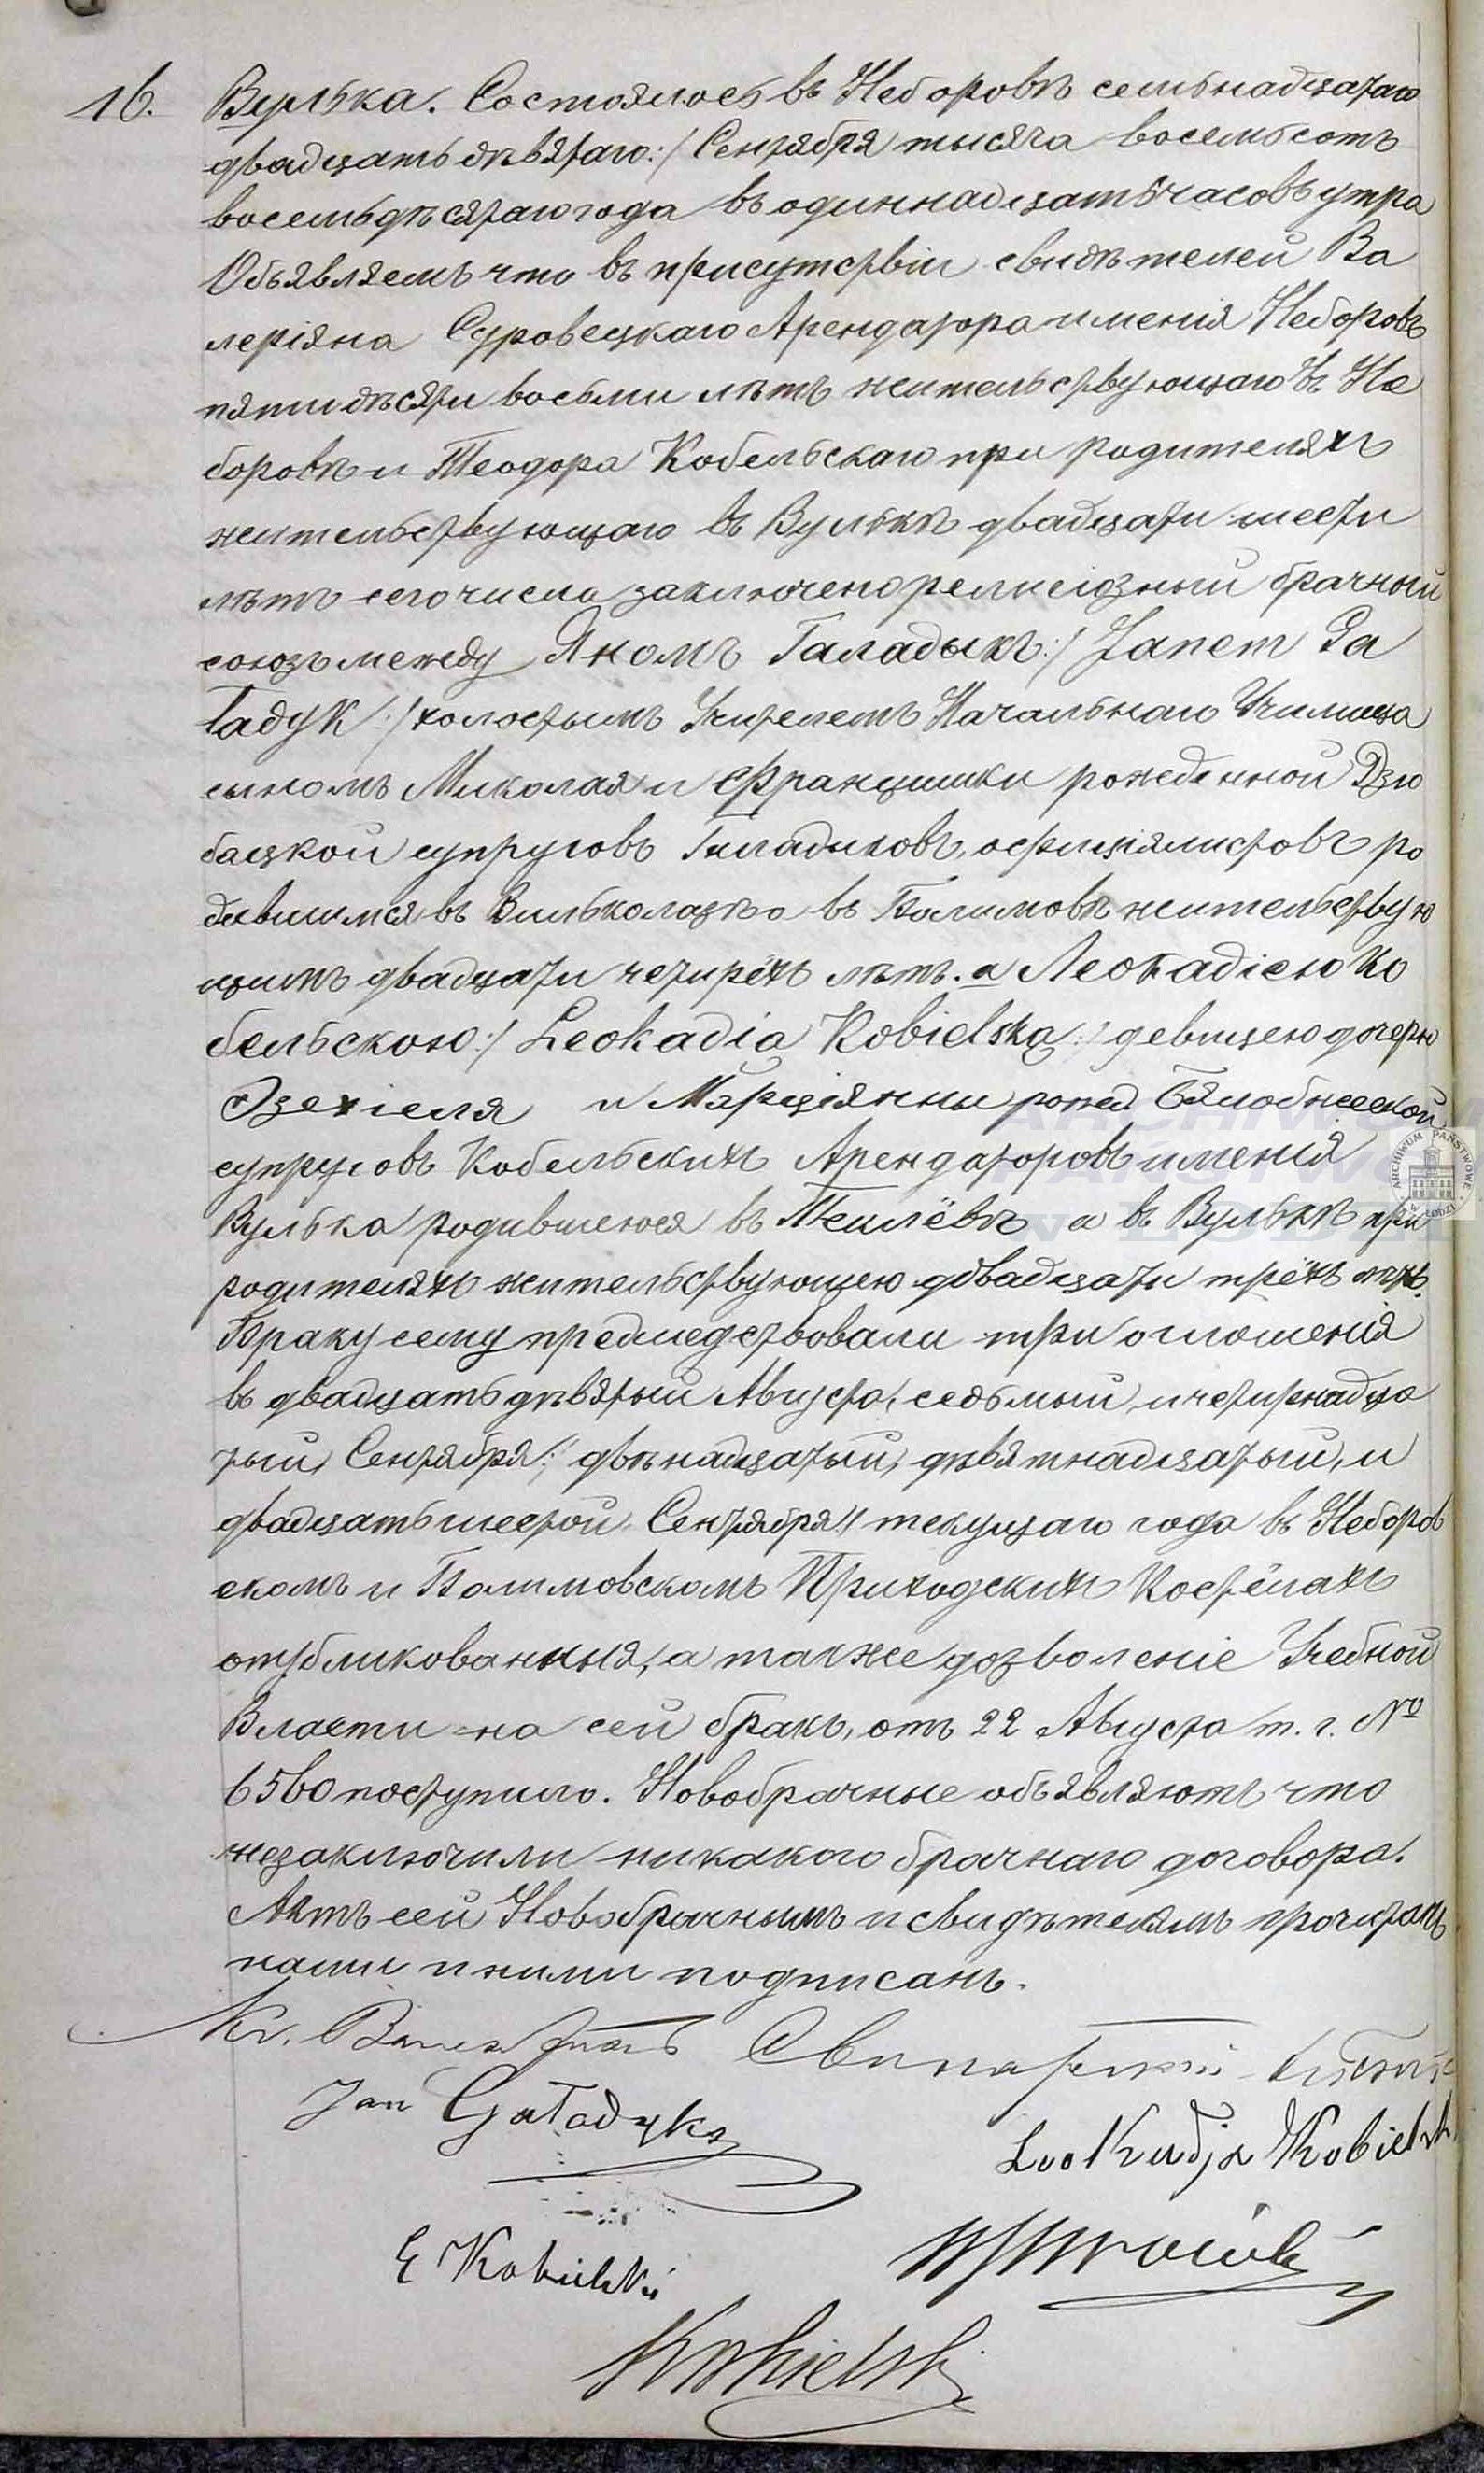 16. Вулька. Состоялось въ Неборовѣ семьнадцатаго
двадцать дѣвятаго:/ Сентября тысяча восемьсотъ
восемьдѣсятаго года въ одиннадцать часовъ утра
Объявляемъ что въ присутствіи свидѣтелей Ва
леріяна Суровецкаго Арендатора имѣнія Неборовъ
пятидѣсяти восьми лѣтъ жительствующаго въ Не
боровѣ и Теодора Кобельскаго при родителяхъ
жительствующаго въ Вулькѣ двадцати шести
лѣтъ сего числа заключено религіозный брачный
союзъ между Яномъ Галадыкъ:/ Janem Ga
ładyk :/ холостымъ Учителемъ Начальнаго Училища
сыномъ Миколая и Францишки рожденной Дзю
бацкой супруговъ Галадыковъ, официялистовъ ро
дившимся въ Вильколазѣ а въ Болимовѣ жительствую
щимъ двадцати четырёхъ лѣтъ. а Леокадіею Ко
бельскою:/ Leokadia Kobielska :/ девицею дочерю
Эзехіеля и Марціянны рожд. Бялобжеской
супруговъ Кобельскихъ Арендаторовъ имѣнія
Вулька родившеюся въ а въ Вулькѣ при
родителяхъ жительствующею двадцати трёхъ лѣтъ.
Браку сему предшедствовали три оглошенія
въ двадцать дѣвятый Августа, седьмый, и четырнадца
тый Сентября:/ двѣнадцатый, дѣвятнадцатый, и
двадцать шестой Сентября:/ текущаго года въ Неборов
скомъ и Болимовскомъ Приходскихъ Костёлахъ
отубликованныя, а также дозволеніе Учебной
Власти на сей бракъ, отъ 22 Августа т. г. №
6560 поступило. Новобрачные объявляютъ что
незаключили никакого брачнаго договора.
Актъ сей Новобрачнымъ и свидѣтелямъ прочитанъ
нами и ними подписанъ.
Кс.
Jan Gaładyk
Leokadja Kobielsk
E Kobielski
Kobielski